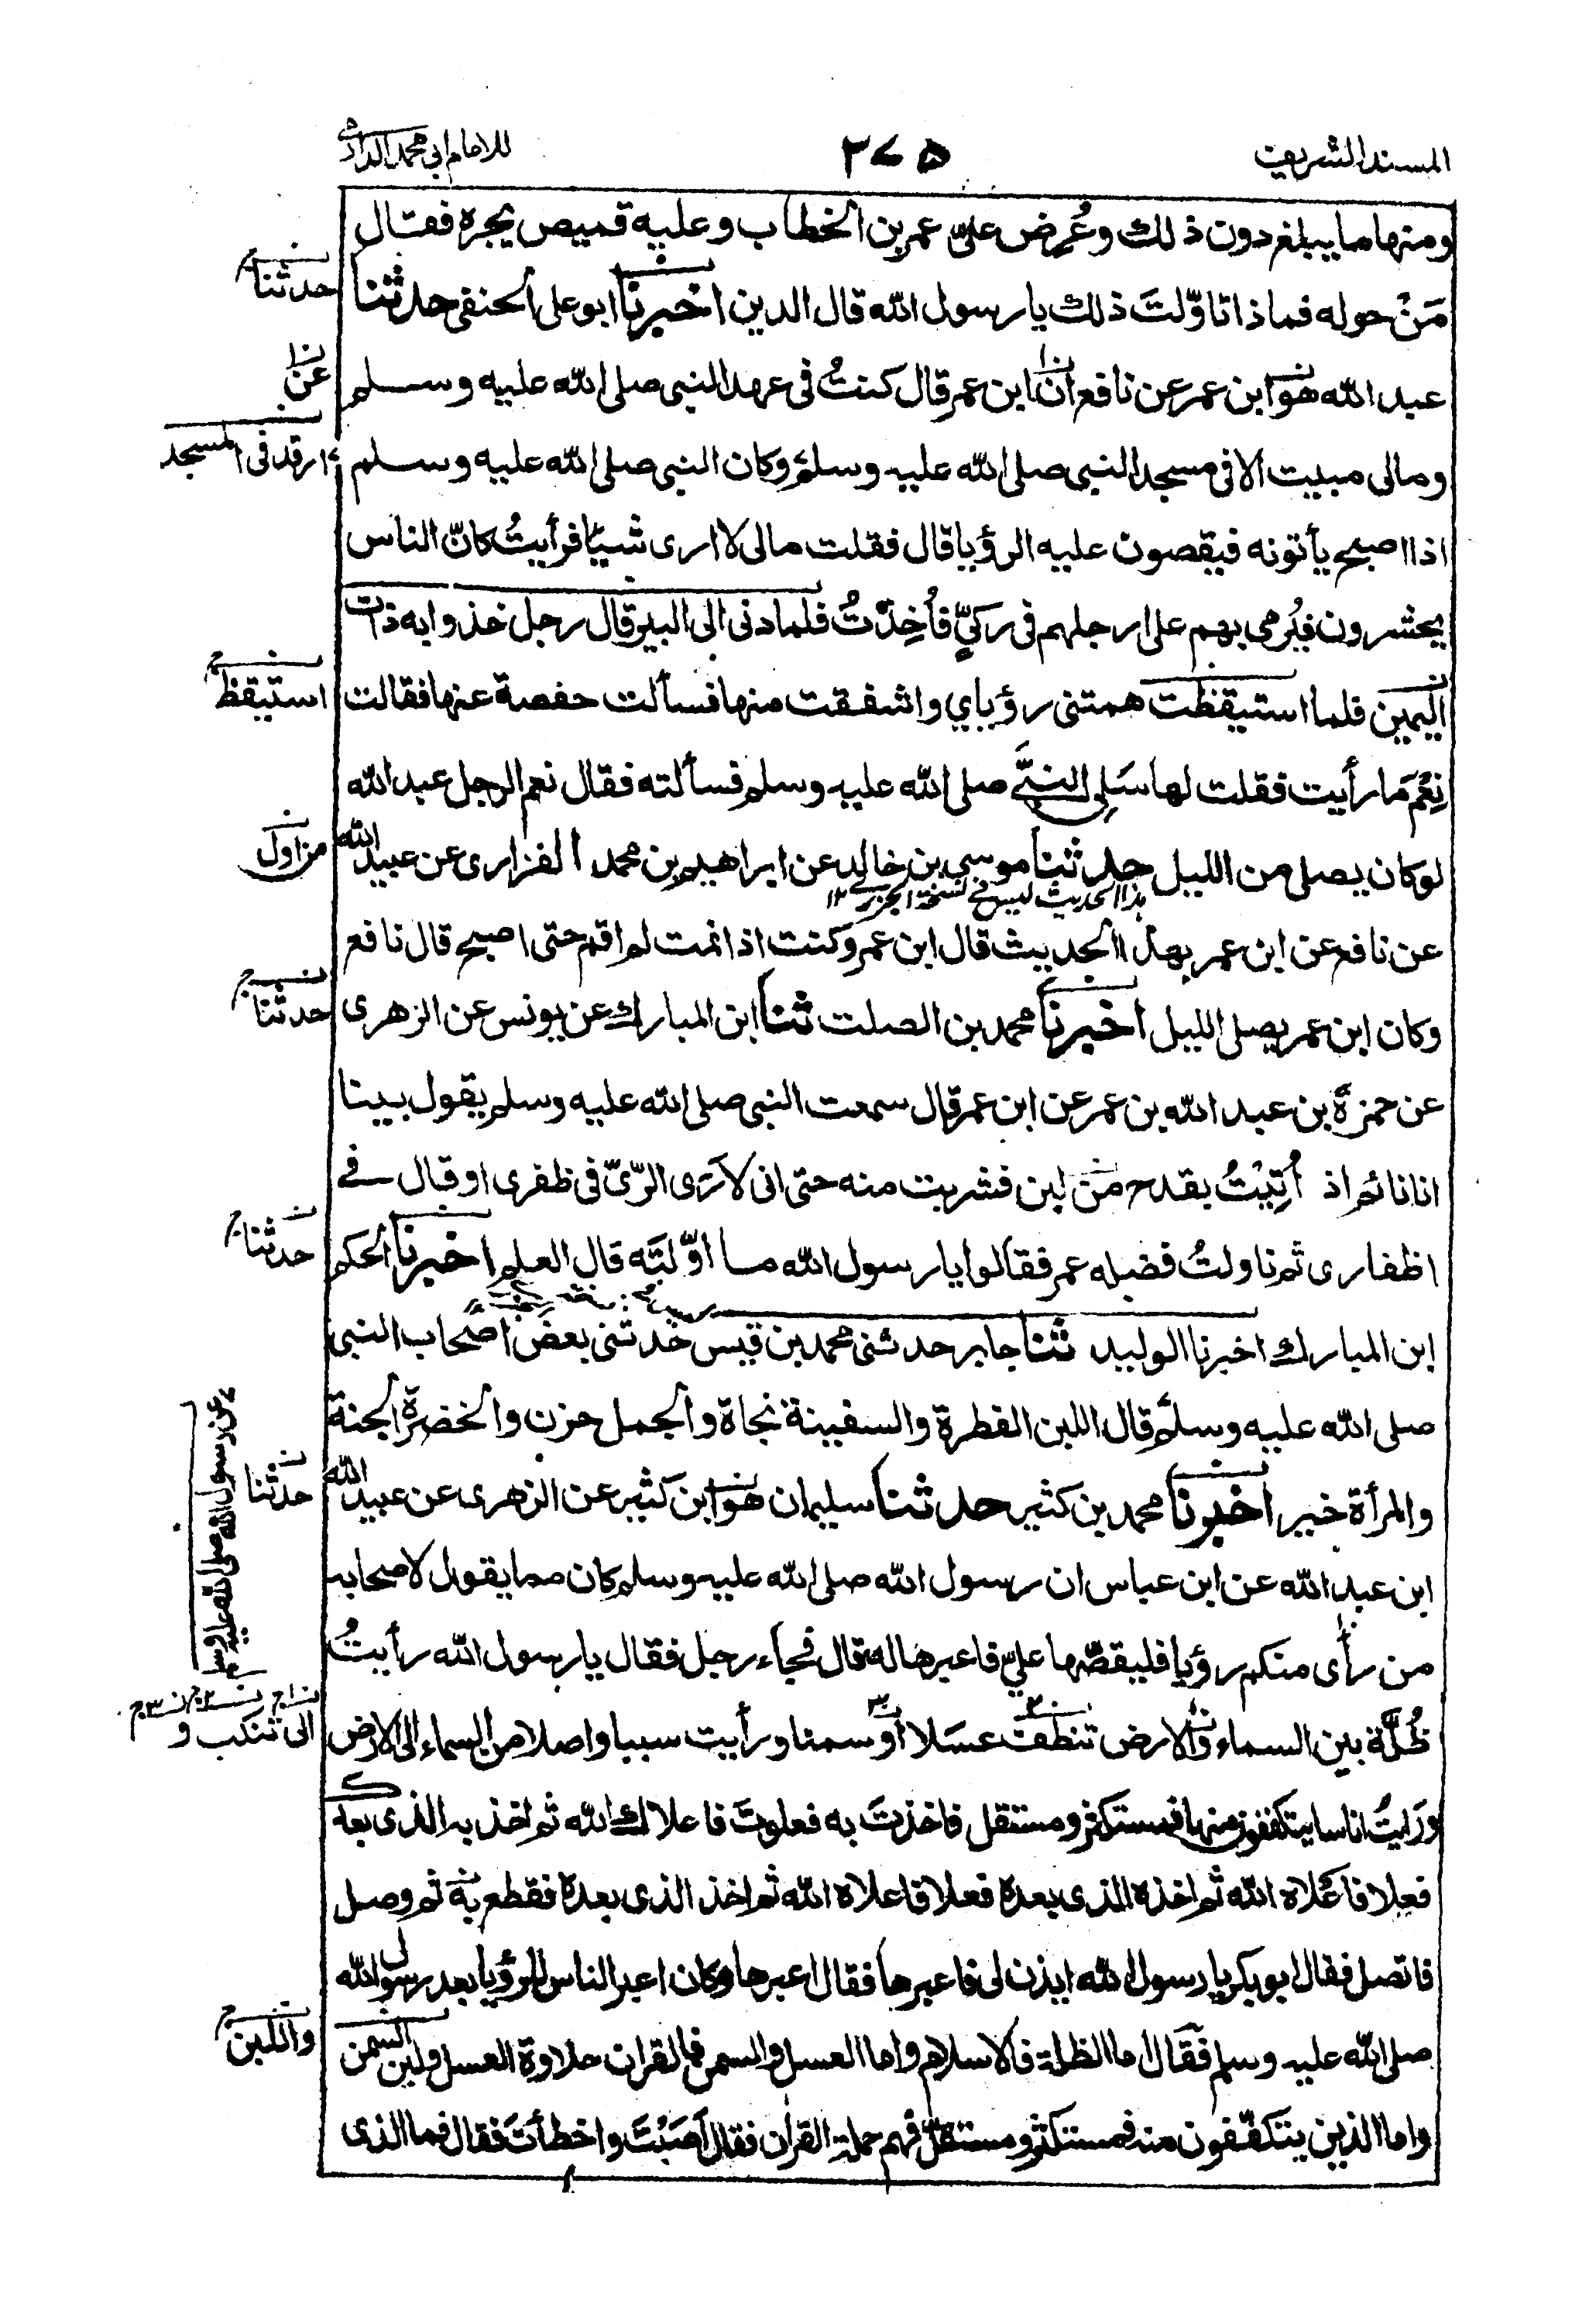 المسند الشريف
٢٧٥
للامام ابي محمد الدارمي
ومنها ما يبلغ دون ذلك وعُرِض عليّ عمر بن الخطاب وعليه قميص يجره فقال
حدثنا
مَنْ حوله فماذا تاوّلتَ ذلك يا رسول الله قال الدين اخبرنا ابو علي الحنفي حدثنا
عن
عبد الله هو ابن عمر عن نافع ان ابن عمر قال كنتُ في عهد النبي صلى الله عليه وسلم
ارقد في المسجد
ومالي مبيت الا في مسجد النبي صلى الله عليه وسلم وكان النبي صلى الله عليه وسلم
اذا اصبح يأتونه فيقصون عليه الرؤيا قال فقلت مالي لا ارى شيئا فرأيتُ كانّ الناس
يحشرون فيُرمى بهم على ارجلهم في ركيٍّ فاُخِذْتُ فلما دنى الى البير قال رجل خذوا به ذات
استيقظ
اليمين فلما استيقظت همتني رؤياي واشفقت منها فسألت حفصة عنها فقالت
نِعْمَ ما رأيت فقلت لها سَلِي النبيَّ صلى الله عليه وسلم فسألته فقال نعم الرجل عبد الله
من اول
لو كان يصلي من الليل حدثنا موسى بن خالد عن ابراهيم بن محمد الفزاري عن عبيد الله
هذا الحديث ليس في نسخة الجزري ١٢
عن نافع عن ابن عمر بهذا الحديث قال ابن عمر وكنت اذا نمت لم اقم حتى اصبح قال نافع
حدثنا
وكان ابن عمر يصلي الليل اخبرنا محمد بن الصلت ثنا ابن المبارك عن يونس عن الزهري
عن حمزة بن عبد الله بن عمر عن ابن عمر قال سمعت النبي صلى الله عليه وسلم يقول بينا
انا نائم اذ أُتِيْتُ بقدح من لبن فشربت منه حتى اني لاَرَى الرّيّ في ظفري او قال في
حدثنا
اظفاري ثم ناولتُ فضله عمر فقالوا يا رسول الله ما اوّلتَه قال العلم اخبرنا الحكم
ابن المبارك اخبرنا الوليد ثنا جابر حدثني محمد بن قيس حدثني بعض اصحاب النبي
عن رسول الله صلى الله عليه وسلم
صلى الله عليه وسلم قال اللبن الفطرة والسفينة نجاة والجمل حزن والخضرة الجنة
حدثنا
والمرأة خير اخبرنا محمد بن كثير حدثنا سليمان هو ابن كثير عن الزهري عن عبيد الله
ابن عبد الله عن ابن عباس ان رسول الله صلى الله عليه وسلم كان مما يقول لاصحابه
من رأى منكم رؤيا فليقصّها عليّ فاعبرها له قال فجاء رجل فقال يا رسول الله رأيتُ
الى تنكب و
ظُلَّة بين السماء والارض تنطف عسَلا او سمنا ورأيت سببا واصلا من السماء الى الارض
ورَايتُ اناسا يتكففون منها فمستكثر ومستقل فاخذتَ به فعلوتَ فاعلاك الله ثم اخذ به الذي بعدك
فعلا فاَعْلاه الله ثم اخذه الذي بعده فعلا فاعلاه الله ثم اخذ الذي بعده فقطع به ثم وصل
فاتصل فقال ابو بكر يا رسول الله ايذن لي فاعبرها فقال اعبرها وكان اعبر الناس للرؤيا بعد رسول الله
واللبن
صلى الله عليه وسلم فقال اما الظلة فالاسلام واما العسل والسمن فالقران حلاوة العسل ولين السمن
واما الذين يتكفّفون منه فمستكثر ومستقلّ فهم حملة القران فقال اَصَبْتَ واخطأتَ فقال فما الذي